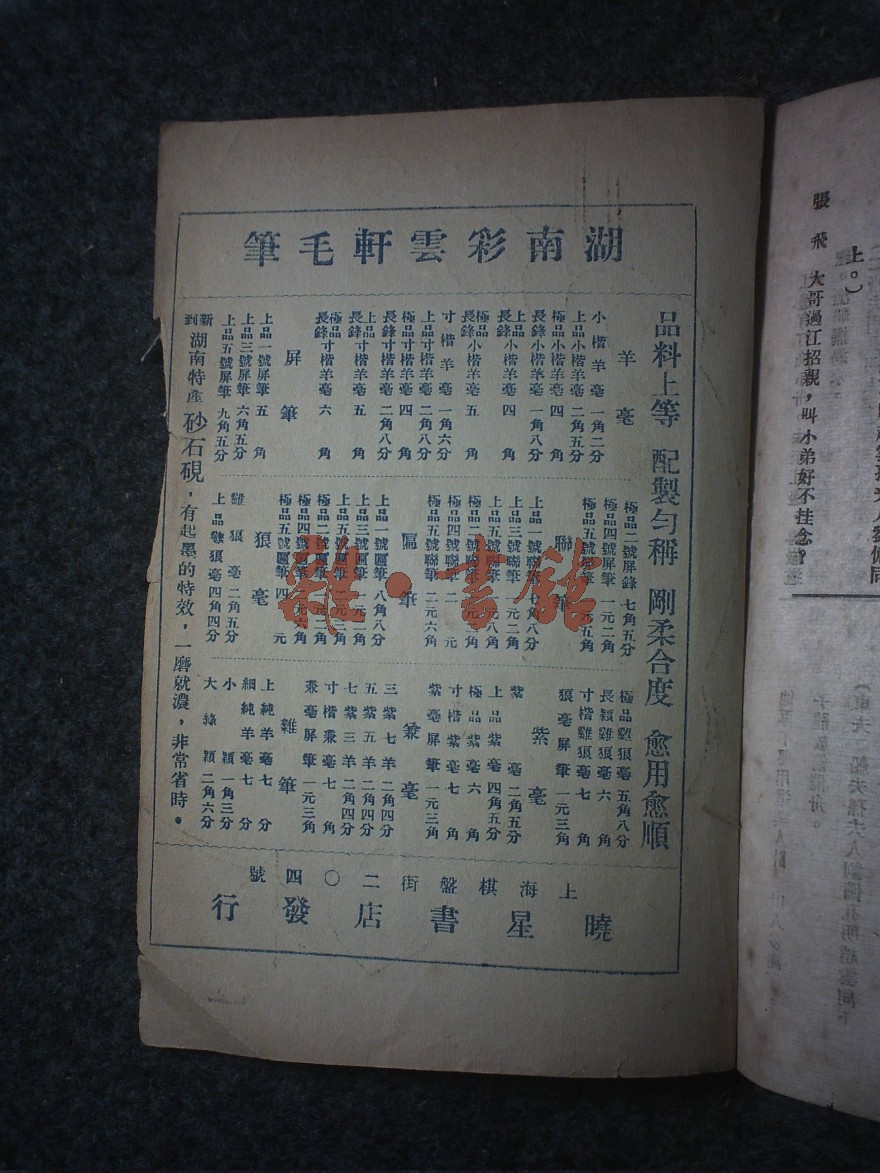 湖南彩雲軒毛筆
品料上等 配製勻稱 剛柔合度 愈用愈順
羊毫
小楷羊毫一角二分
上品小楷羊毫二角五分
極品小楷羊毫四角
長鋒小楷羊毫一角八分
上品長鋒小楷羊毫四角
極品長鋒小楷羊毫五角
寸楷羊毫一角六分
上品寸楷羊毫二角八分
極品寸楷羊毫四角
長鋒寸楷羊毫二角八分
上品長鋒寸楷羊毫五角
極品長鋒寸楷羊毫六角
屏筆
上品一號屏筆五角
上品三號屏筆六角五分
上品五號屏筆九角五分
極品二號屏鋒七角五分
極品四號屏筆一元二角
極品五號屏筆一元五角
聯筆
上品一號聯筆七角八分
上品三號聯筆
上品五號聯筆
極品二號聯筆
極品四號聯筆二元
極品五號聯筆二元六角
匾筆
上品一號匾筆八角八分
上品三號匾筆
上品五號匾筆
極品二號匾筆
極品四號匾筆
極品五號匾筆
狼毫
雞狼毫二角五分
上品雞狼毫四角四分
極品雞狼毫五角八分
長穎雞狼毫六角
寸楷雞狼毫七角
狼毫屏筆一元三角
紫毫
紫毫二角五分
上品紫毫四角五分
極品紫毫七角
寸楷紫毫七角
紫毫屏筆一元三角
兼毫
三紫七羊二角四分
五紫五羊二角四分
七紫三羊二角四分
寸楷兼毫七角
兼毫屏筆一元三角
雜筆
上純羊毫七分
細純羊毫七分
小綠穎一角三分
大綠穎二角六分
新到湖南特產砂石硯，有起墨的特效，一磨就濃，非常省時。
上海棋盤街二〇四號
曉星書店發行
雜·書館
上。）
張飛 大哥過江招親，叫小弟好不挂念